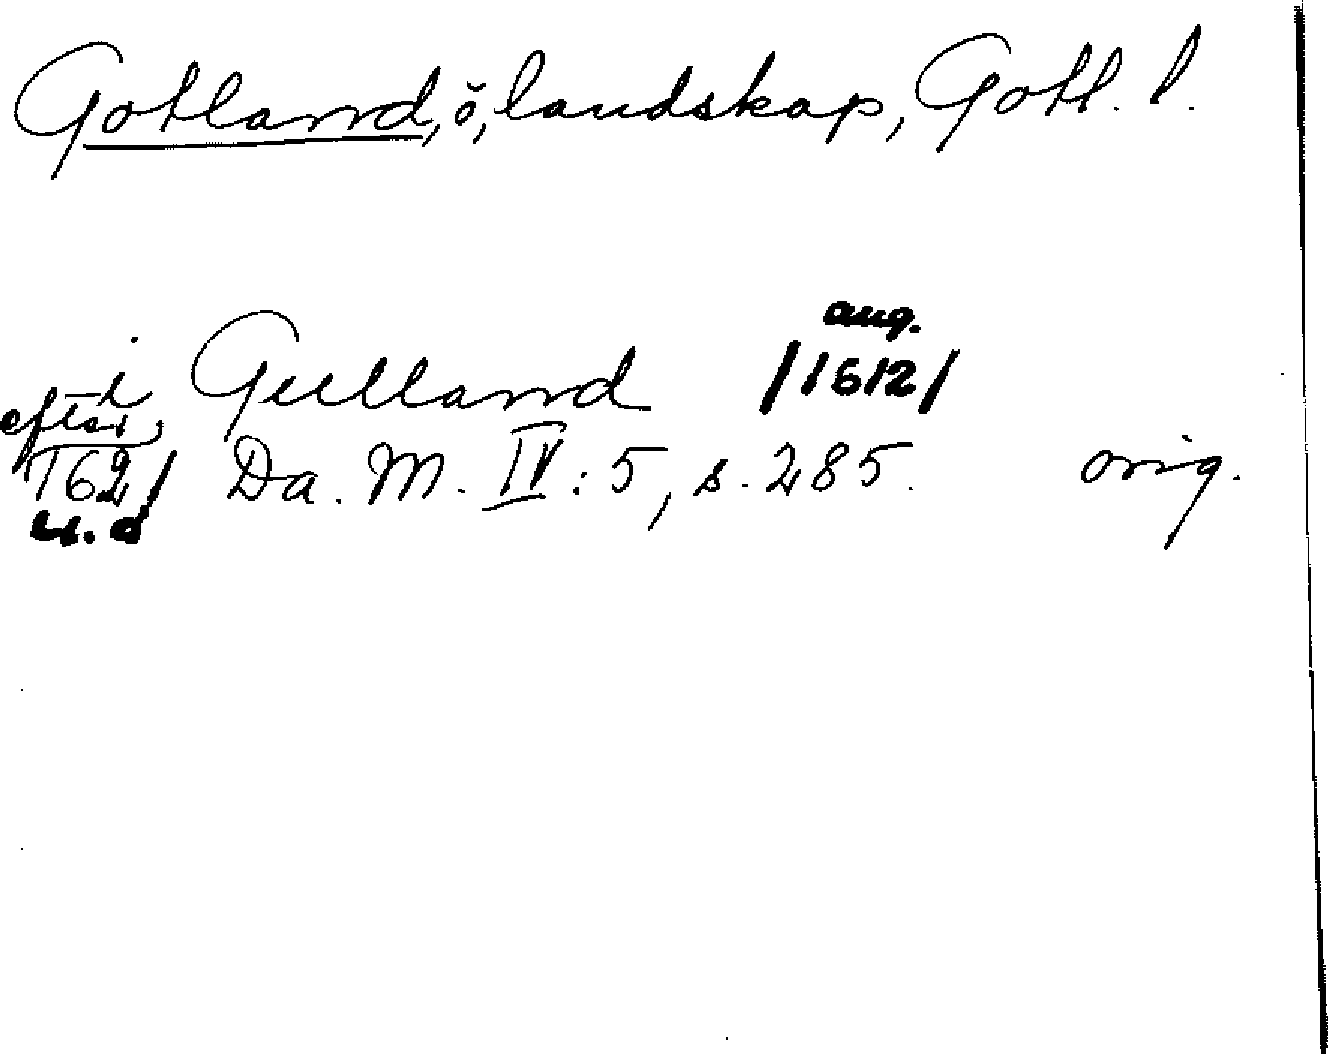 Gotland, ö, landskap, Gotl. l.
aug.
i Gulland /1612/
efter
1621 Da. M. IV: 5, s. 285. orig.
u. å